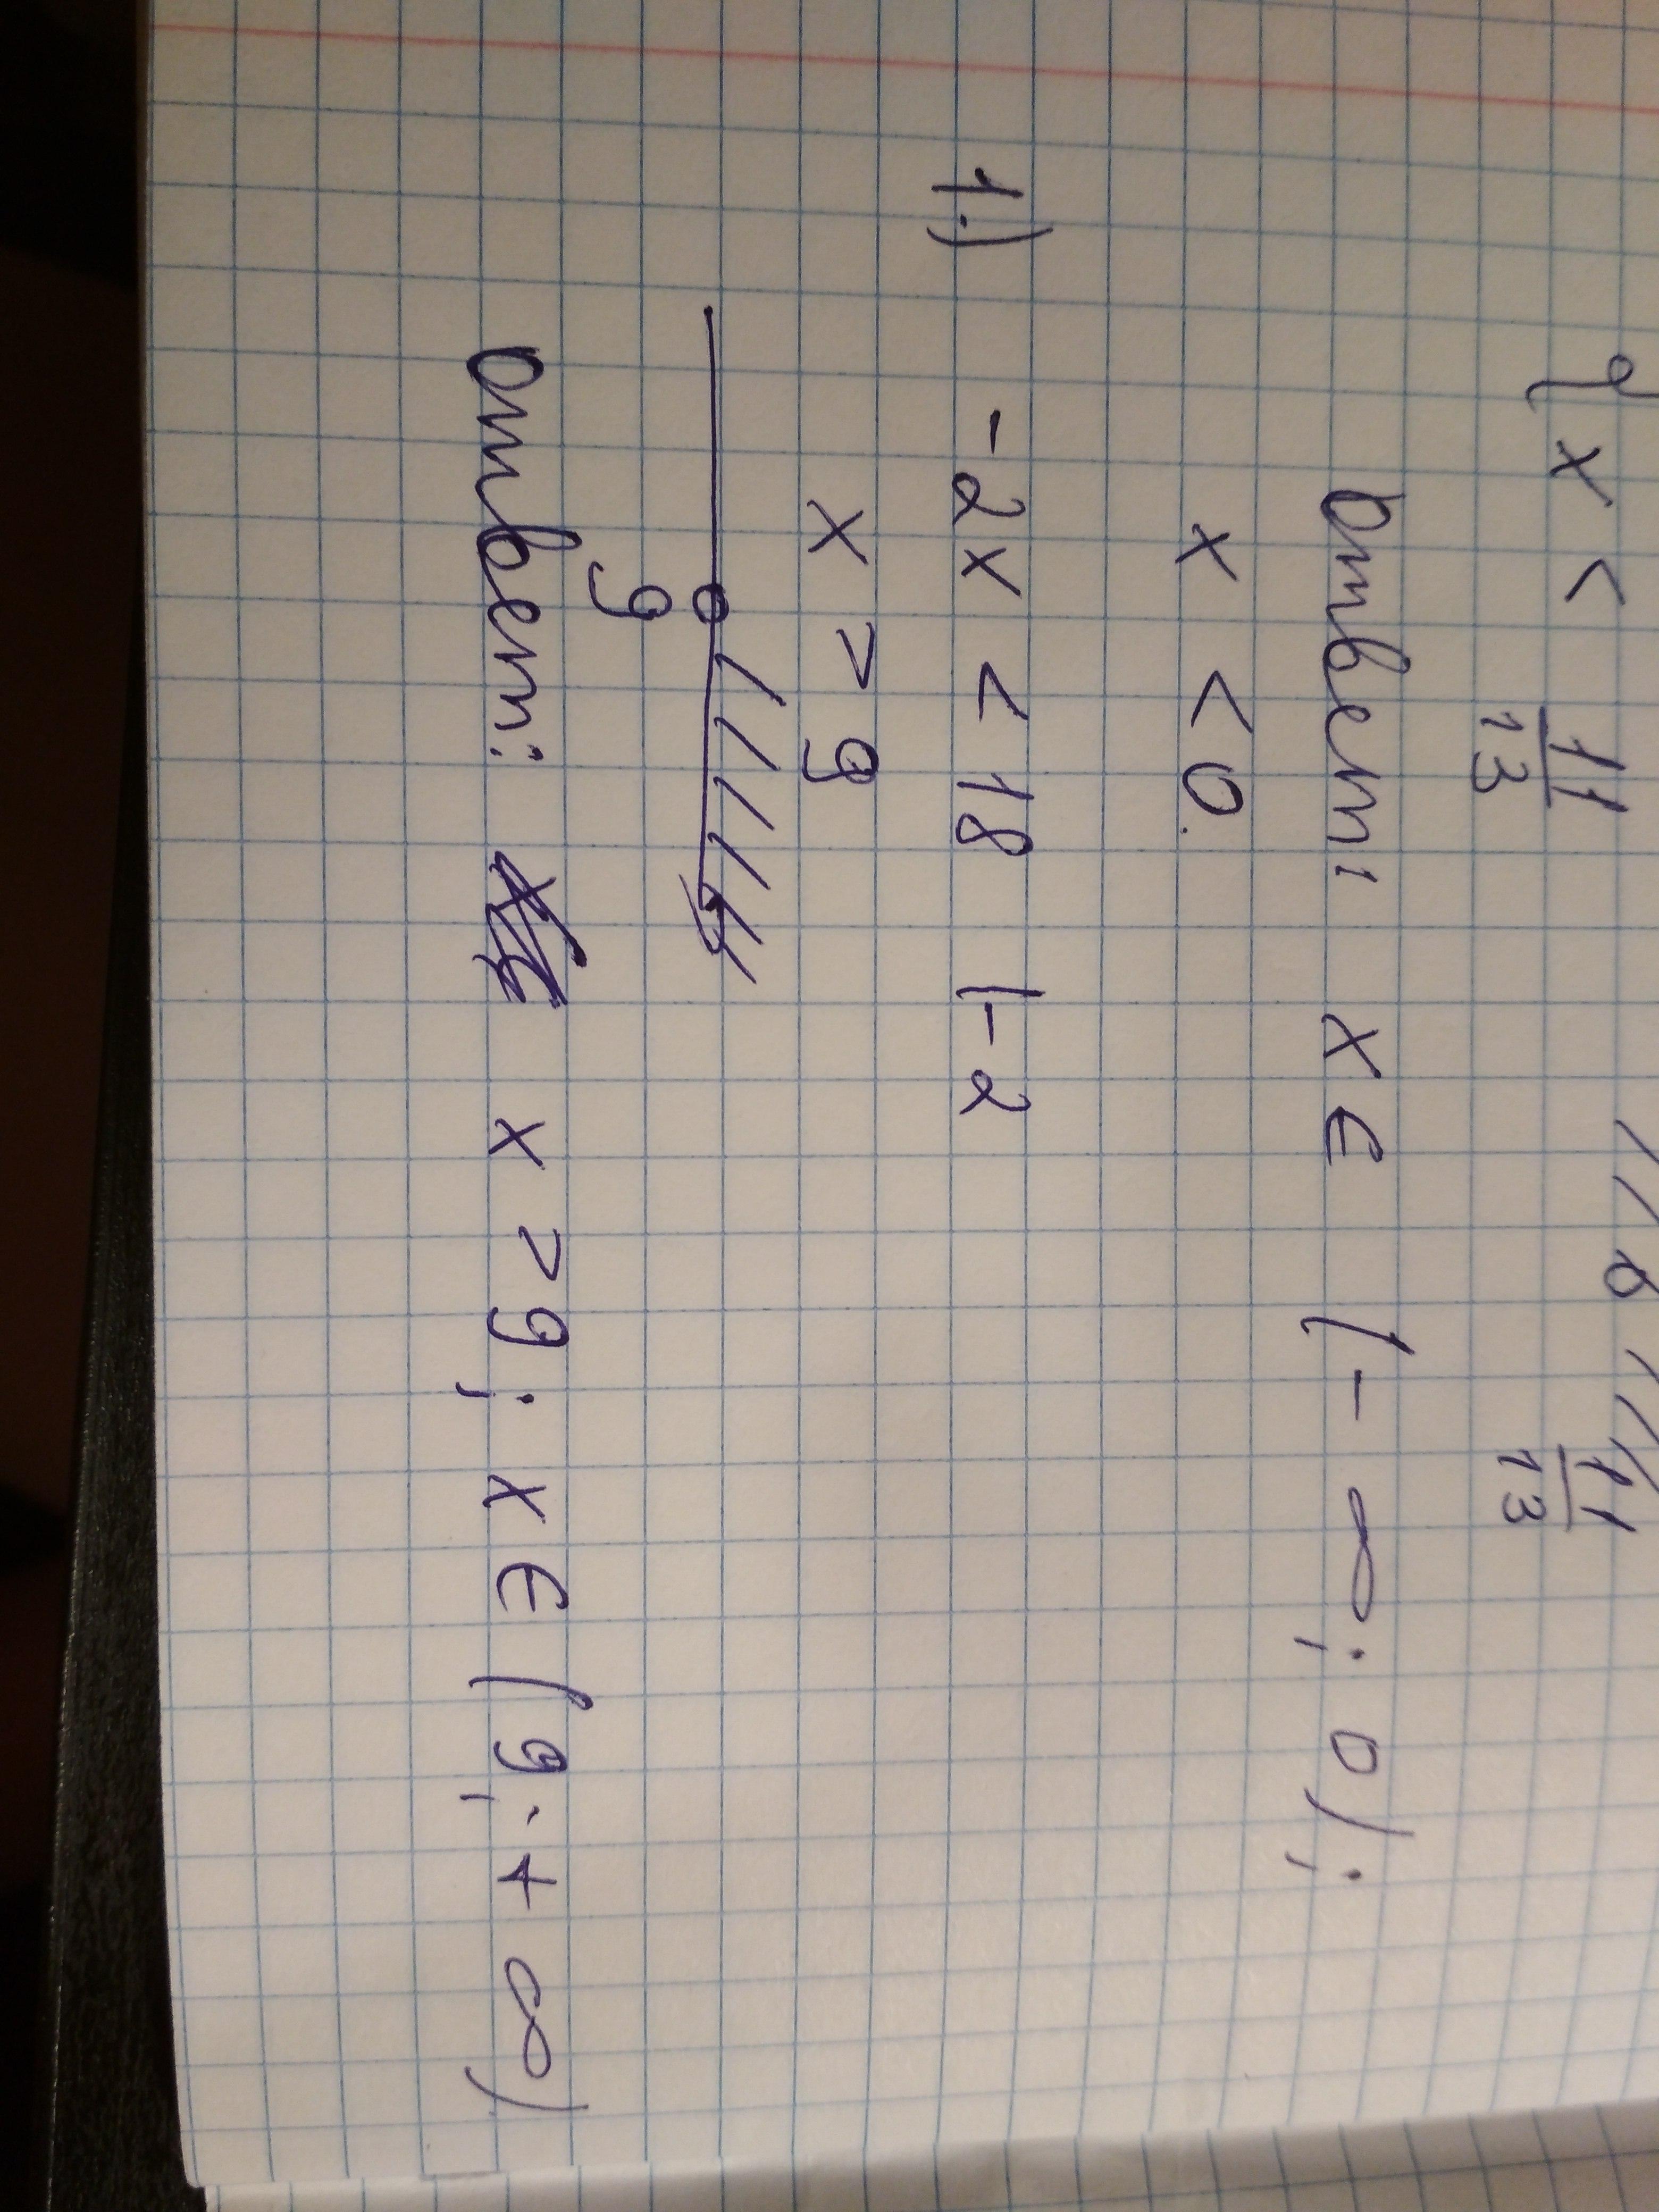 x < 11/13 0 11/13
Ответ: x ∈ (-∞; 0);
x < 0.
1.) -2x < 18 |-2
x > 9
9
Ответ: x > 9; x ∈ (9; +∞)